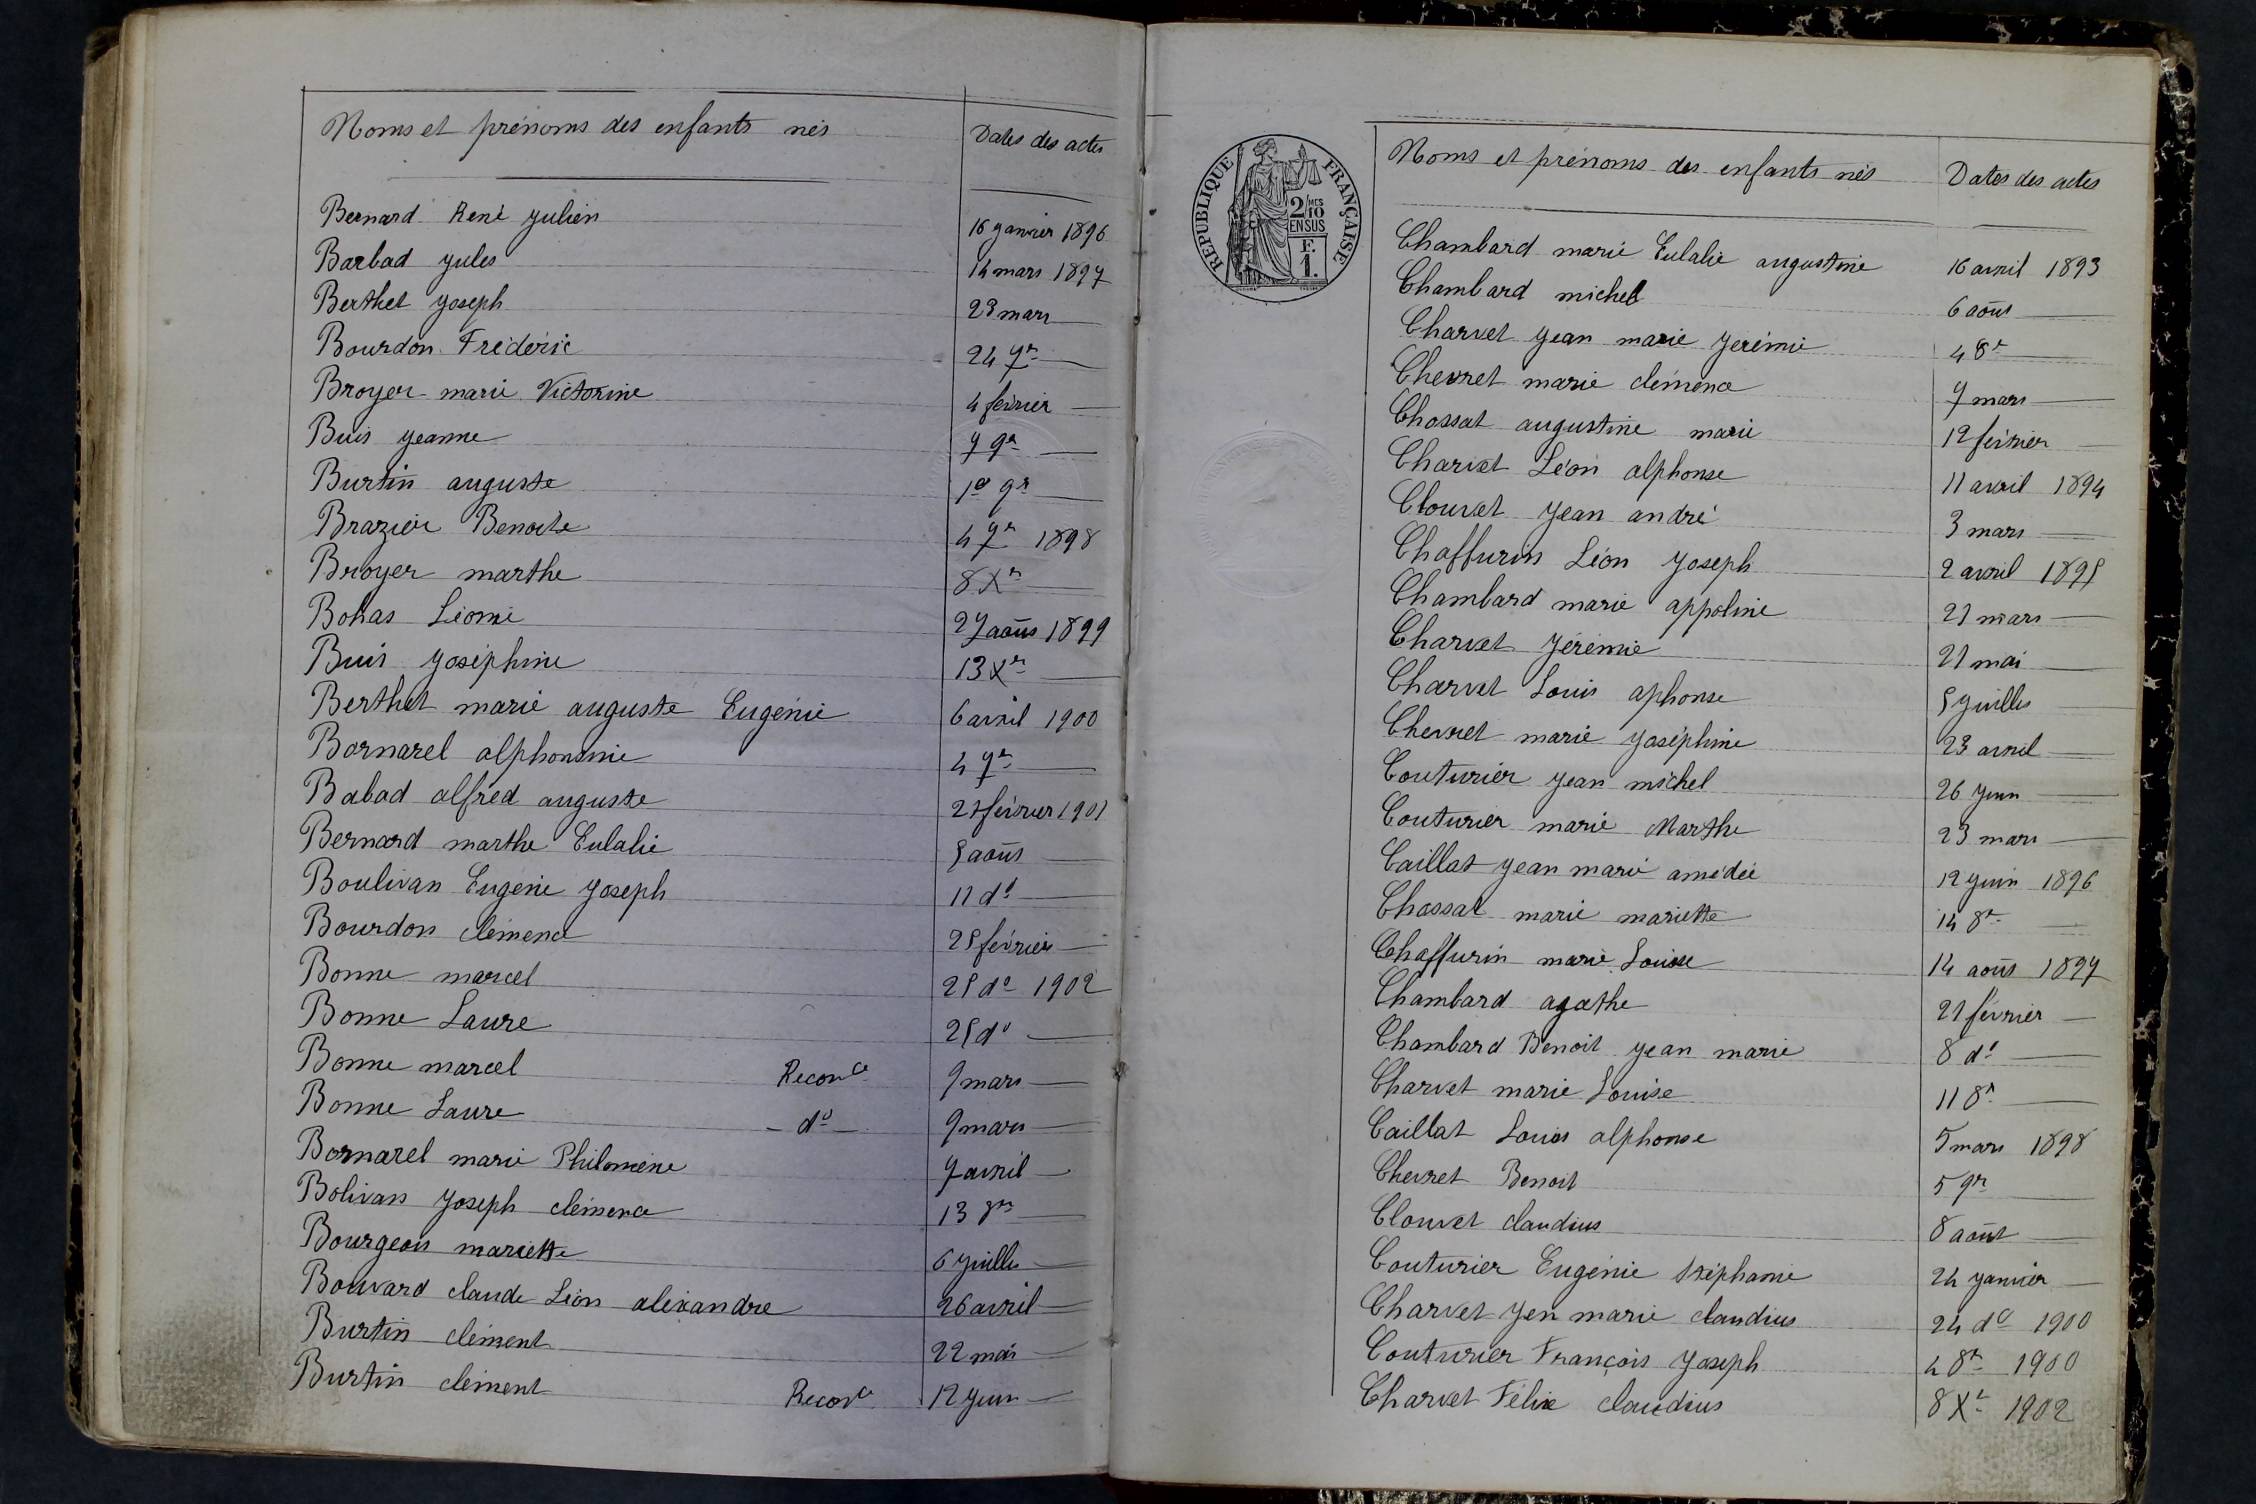 Noms et prénoms des enfants nés Dates des actes
Bernard René Jules 16 Janvier 1896
Barbad Jules 14 mars 1897
Berthet Joseph 23 mars
Bourdon Frédéric 24 7re
Broyer marie Victorine 4 février
Buis Jeanne 7 9re
Burtin auguste 9re
Brazier Benoite 4 7re 1898
Broyer marthe 8 Xre
Bohas Léonie 27 août 1899
Buis Joséphine 13 Xre
Berthet marie auguste Eugénie 6 avril 1900
Bornarel alphonsine 4 7re
Babad alfred auguste 21 février 1901
Bernard marthe Eulalie 5 août
Boulivan Eugène Joseph 11 do
Bourdon clémence 25 février
Bonne marcel 25 do 1902
Bonne Laure 25 do
Bonne marcel Reconce 9 mars
Bonne Laure - do - 9 mars
Bornarel marie Philomène 7 avril
Bolivan Joseph clémence 13
Bourgeois mariette 6 Juillet
Bouvard claude Léon alexandre 26 avril
Burtin clément 22 mai
Burtin clément Reconce 12 Juin
RÉPUBLIQUE FRANÇAISE
2/10 MES
EN SUS
F.
1.
Noms et prénoms des enfants nés Dates des actes
Chambard marie Eulalie augustine 16 avril 1893
Chambard michel 6 août
Charvet Jean marie Jérémie 4 8re
Chevret marie clémence 7 mars
Chossat augustine marie 12 février
Charvet Léon alphonse 11 avril 1894
Clouvet Jean andré 3 mars
Chaffurin Léon Joseph 2 avril 1895
Chambard marie appoline 21 mars
Charvet Jérémie 21 mai
Charvet Louis aphonse 5 Juillet
Chevret marie Joséphine 23 avril
Couturier Jean michel 26 Juin
Couturier marie Marthe 23 mars
Caillat Jean marie amédée 12 Juin 1896
Chossat marie mariette 14 8re
Chaffurin marie Louise 14 août 1897
Chambard agathe 21 février
Chambard Benoit Jean marie 8 do
Charvet marie Louise 11 8re
Caillat Louis alphonse 5 mars 1898
Chevret Benoit 5 9re
Clouvet claudius 8 août
Couturier Eugénie Stéphanie 24 Janvier
Charvet Jen marie claudius 24 do 1900
Couturier François Joseph 4 8re 1900
Charvet Félix claudius 8 Xre 1902